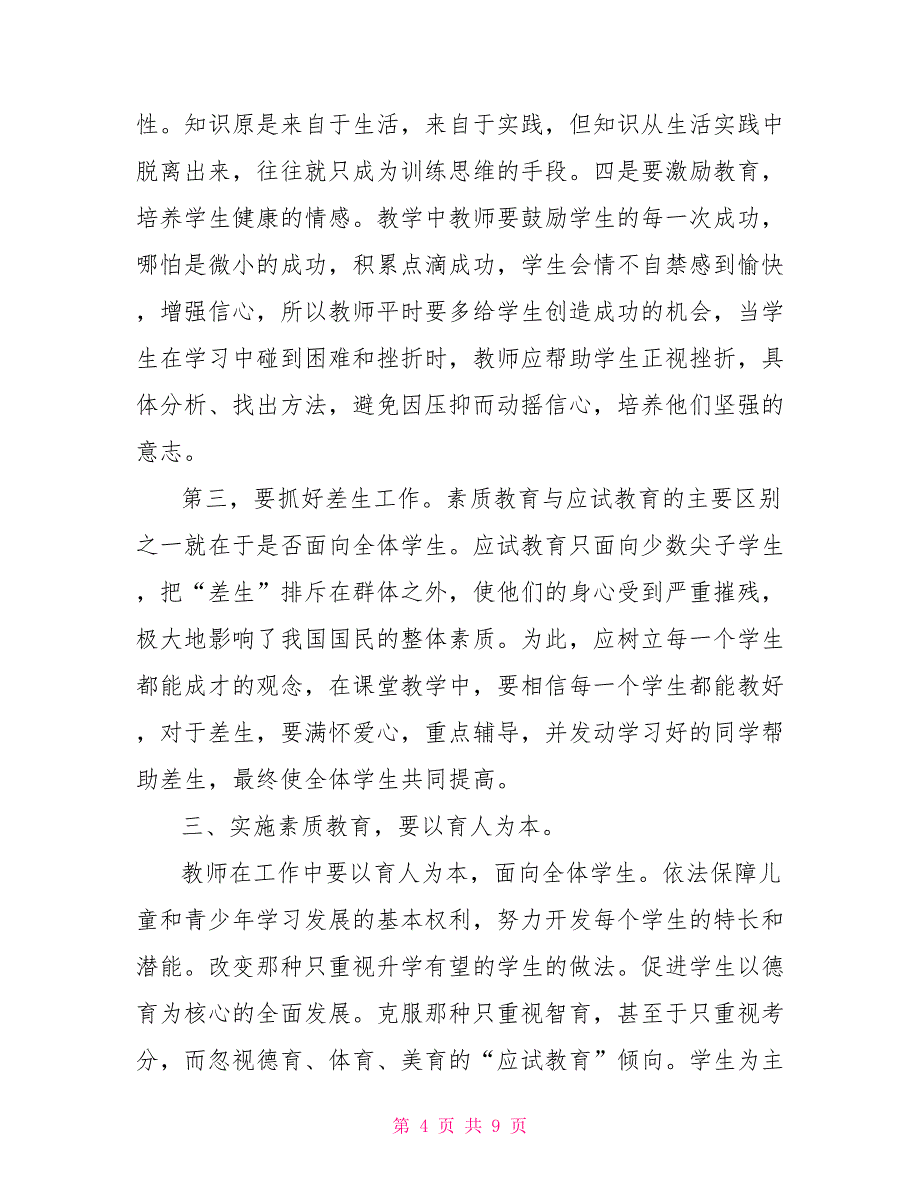 性。知识原是来自于生活，来自于实践，但知识从生活实践中
脱离出来，往往就只成为训练思维的手段。四是要激励教育，
培养学生健康的情感。教学中教师要鼓励学生的每一次成功，
哪怕是微小的成功，积累点滴成功，学生会情不自禁感到愉快
，增强信心，所以教师平时要多给学生创造成功的机会，当学
生在学习中碰到困难和挫折时，教师应帮助学生正视挫折，具
体分析、找出方法，避免因压抑而动摇信心，培养他们坚强的
意志。
第三，要抓好差生工作。素质教育与应试教育的主要区别
之一就在于是否面向全体学生。应试教育只面向少数尖子学生
，把“差生”排斥在群体之外，使他们的身心受到严重摧残，
极大地影响了我国国民的整体素质。为此，应树立每一个学生
都能成才的观念，在课堂教学中，要相信每一个学生都能教好
，对于差生，要满怀爱心，重点辅导，并发动学习好的同学帮
助差生，最终使全体学生共同提高。
三、实施素质教育，要以育人为本。
教师在工作中要以育人为本，面向全体学生。依法保障儿
童和青少年学习发展的基本权利，努力开发每个学生的特长和
潜能。改变那种只重视升学有望的学生的做法。促进学生以德
育为核心的全面发展。克服那种只重视智育，甚至于只重视考
分，而忽视德育、体育、美育的“应试教育”倾向。学生为主
第 4 页 共 9 页